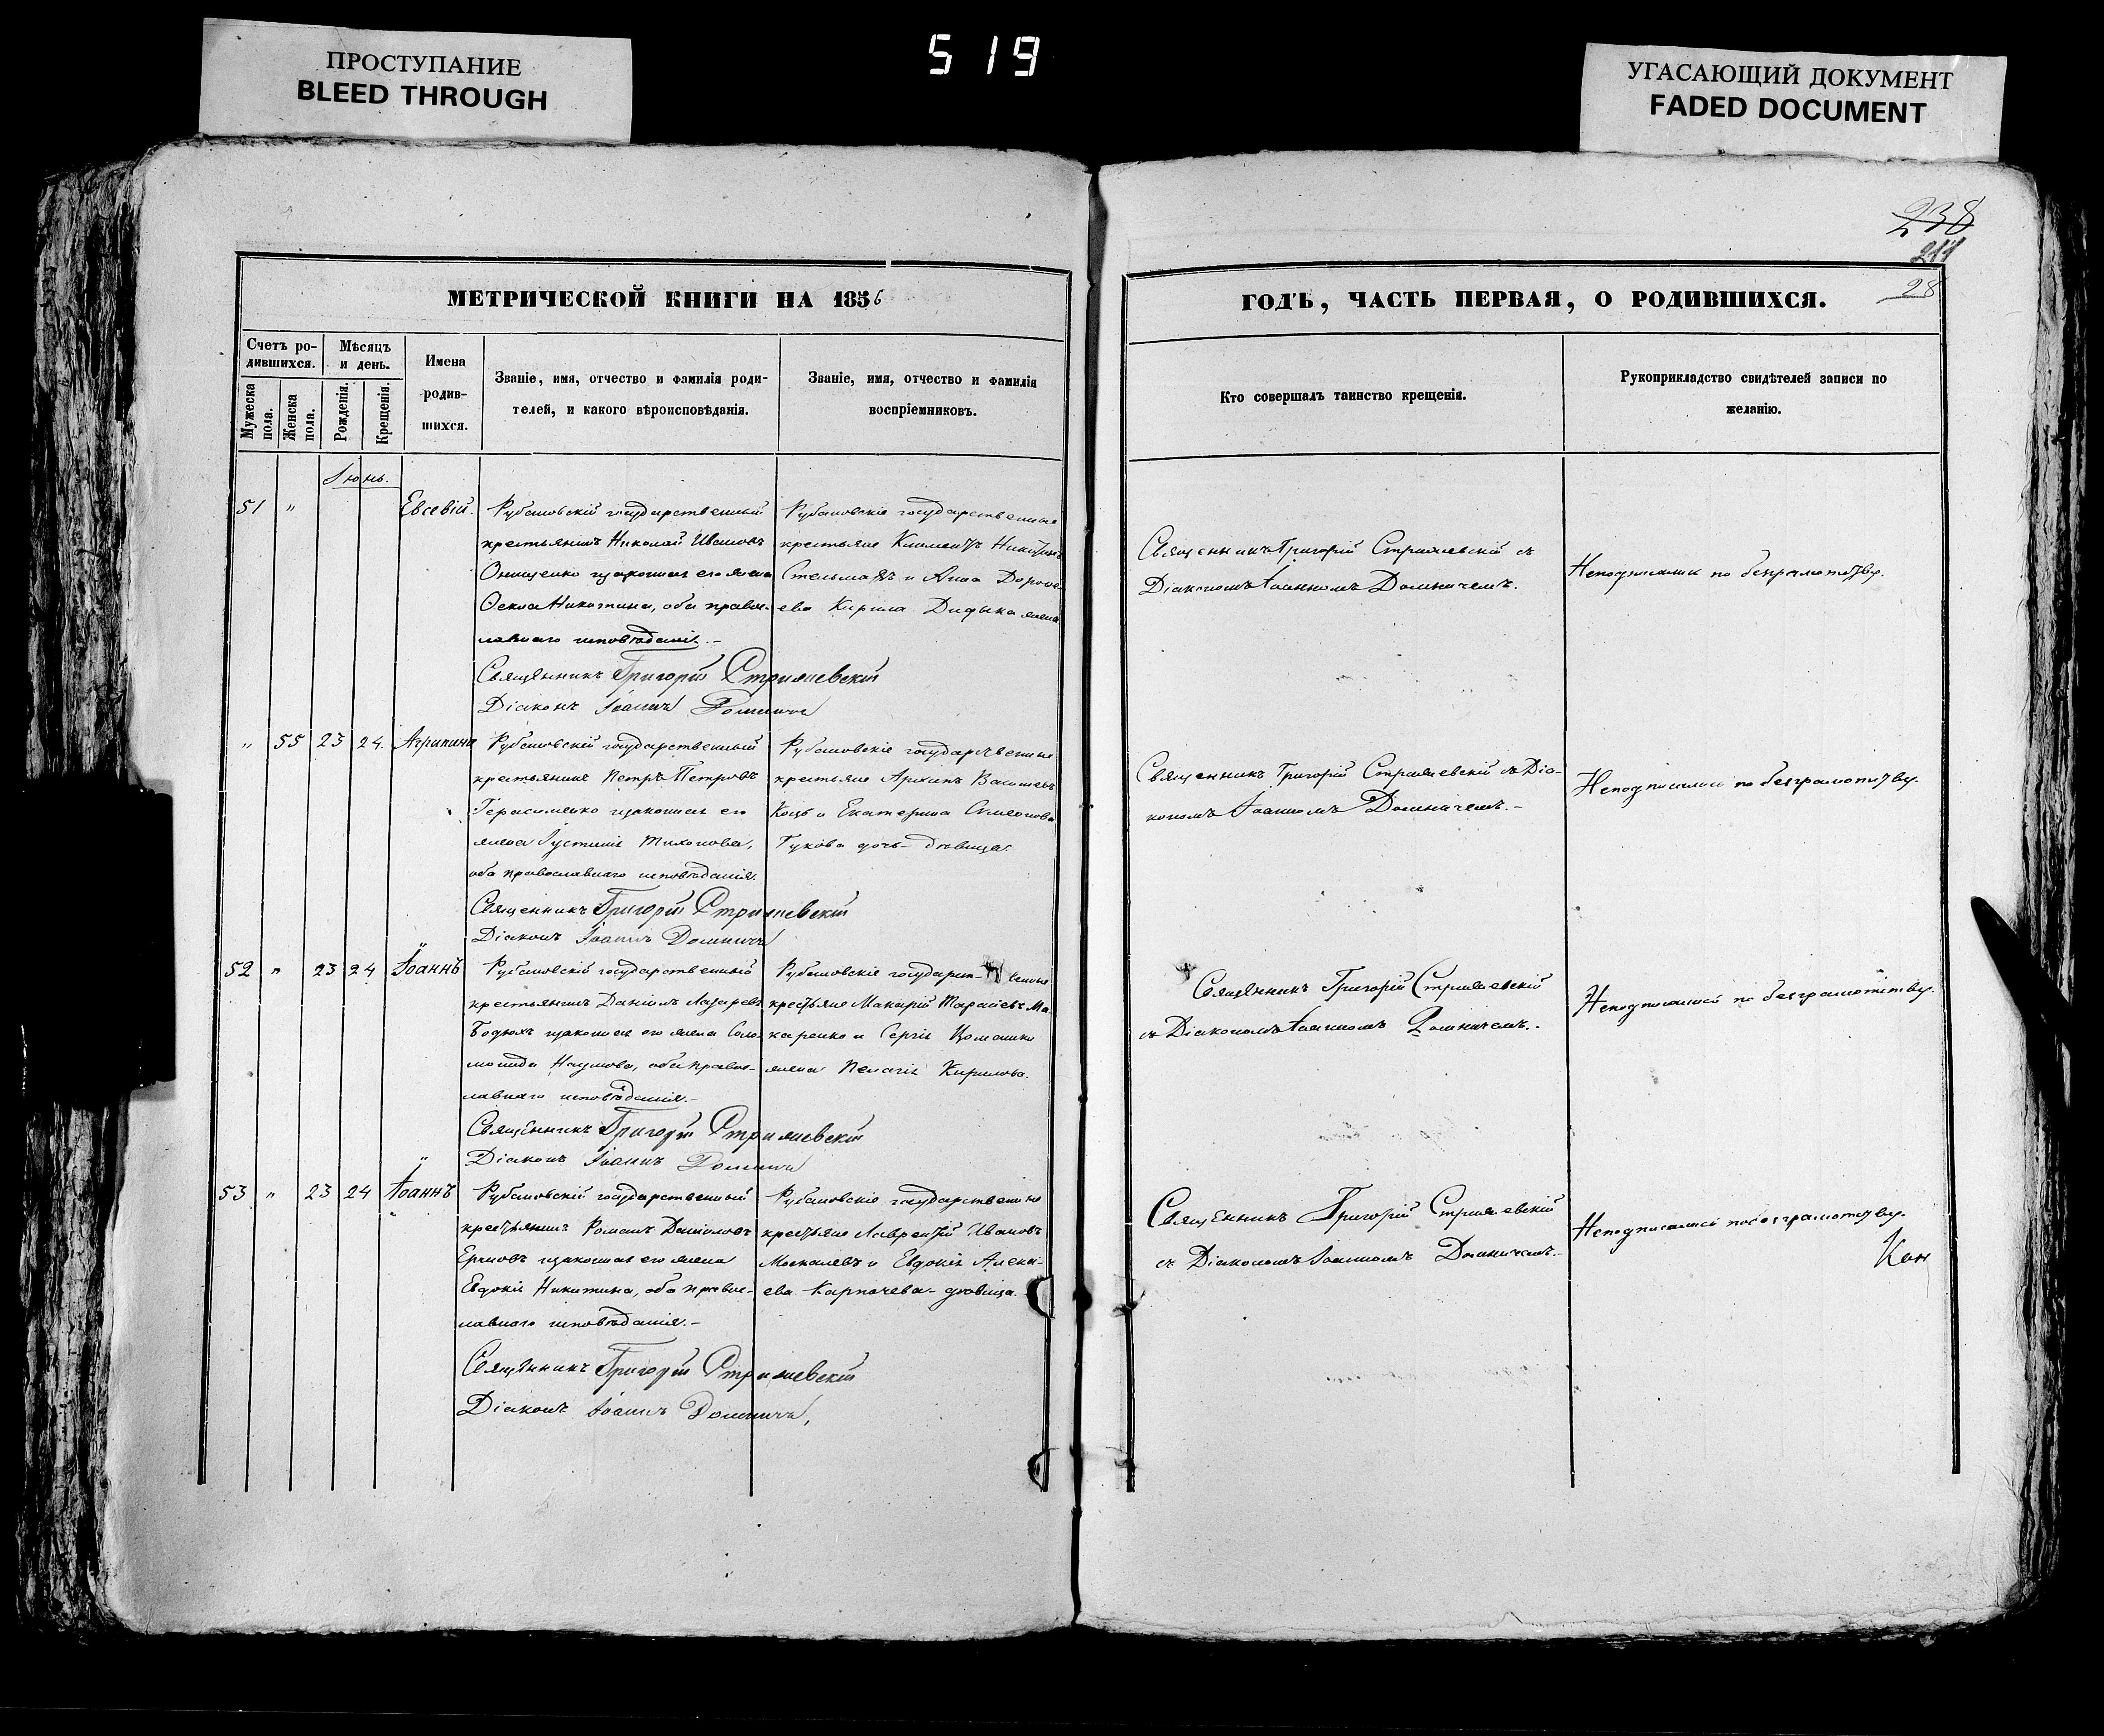 ПРОСТУПАНИЕ
BLEED THROUGH
519
УГАСАЮЩИЙ ДОКУМЕНТ
FADED DOCUMENT
238
211
28
МЕТРИЧЕСКОЙ КНИГИ НА 1856
Счетъ ро-
дившихся.
Мужеска
пола.
Женска
пола.
Мѣсяцъ
и день.
Рожденія.
Крещенія.
Имена
родив-
шихся.
Званіе, имя, отчество и фамилія роди-
телей, и какого вѣроисповѣданія.
Званіе, имя, отчество и фамилія
воспріемниковъ.
Іюнь.
51 " Евсевій.
Рубановскій государственный
крестьянинъ Николай Ивановъ
Онищенко изаконная его жена
Никитина, оба правос-
лавнаго исповѣданія.-
Рубановскіе государственные
крестьяне Климентъ Никитинъ
Стельмахъ и Анна Дорофе-
ева Кирила Дидыка жена
Священникъ Григорій Стрижевскій
Діаконъ Іоаннъ
" 55 23 24. Агрипина
Рубановскій государственный
крестьянинъ Петръ Петровъ
Герасименко изаконная его
жена Іустинія Тихонова,
оба православнаго исповѣданія.
Рубановскіе государственные
крестьяне Архипъ
Коцъ и Екатерина Симеонова
Гукова дочь- дѣвица.
Священникъ Григорій Стрижевскій
Діаконъ Іоаннъ
52 " 23 24 Іоаннъ
Рубановскій государственный
крестьянинъ Даніилъ Лазаревъ
изаконная его жена Соло-
монида Наумова, оба правос-
лавнаго исповѣданія.-
Рубановскіе государст-венные
крестьяне Макарій Ма
каренко и Сергія
жена Пелагія Кирилова.
Священникъ Григорій Стрижевскій
Діаконъ Іоаннъ
53 " 23 24 Іоаннъ
Рубановскій государственный
крестьянинъ Романъ Даніиловъ
изаконная его жена
Евдокія Никитина, оба правос-
лавнаго исповѣданія.-
Рубановскіе государственные
крестьяне Лаврентій Ивановъ
Москалевъ и Евдокія Алексі-
ева Карпачева- дѣвица.
Священникъ Григорій Стрижевскій
Діаконъ Іоаннъ
ГОДЪ, ЧАСТЬ ПЕРВАЯ, О РОДИВШИХСЯ.
Кто совершалъ таинство крещенія.
Рукоприкладство свидѣтелей записи по
желанію.
Священникъ Григорій Стрижевскій съ
Діакономъ Іоанномъ
Неподписались по безграмотству.
Священникъ Григорій Стрижевскій съ Діа-
кономъ Іоанномъ
Неподписались по безграмотству.
Священникъ Григорій Стрижевскій
съ Діакономъ Іоанномъ
Неподписались по безграмотству.
Священникъ Григорій Стрижевскій
съ Діакономъ Іоанномъ
Неподписались побезграмотству.
Кон